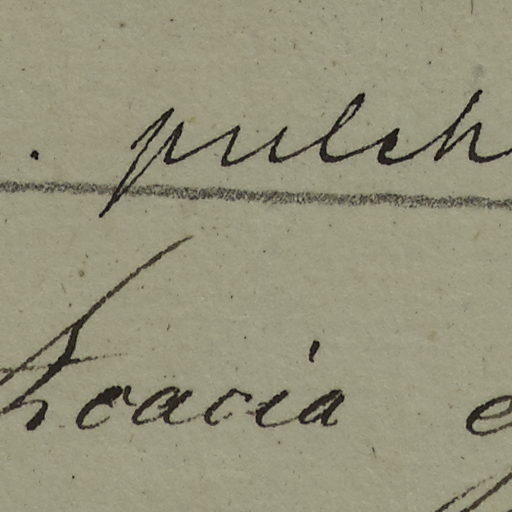 . pulch
Acacia e